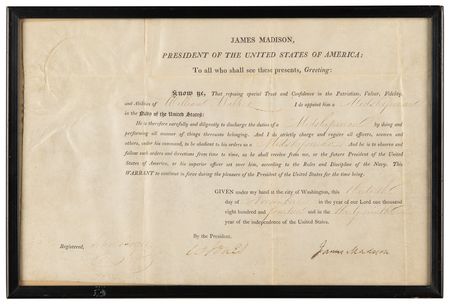 JAMES MADISON,
PRESIDENT OF THE UNITED STATES OF AMERICA:
To all who shall see these presents, Greeting:
Know ye, That reposing special Trust and Confidence in the Patriotism, Valour, Fidelity,
and Abilities of William I do appoint him a Midshipman
in the Navy of the United States:
He is therefore carefully and diligently to discharge the duties of a Midshipman by doing and
performing all manner of things thereunto belonging. And I do strictly charge and require all officers, seamen and
others, under his command, to be obedient to his orders as a Midshipman and he is to observe and
follow such orders and directions from time to time, as he shall receive from me, or the future President of the United
States of America, or his superior officer set over him, according to the Rules and Discipline of the Navy. This
WARRANT to continue in force during the pleasure of the President of the United States for the time being.
GIVEN under my hand at the city of Washington, this
day of November in the year of our Lord one thousand
eight hundred and fourteen and in the thirty ninth
year of the independence of the United States.
By the President.
Registered, James Madison